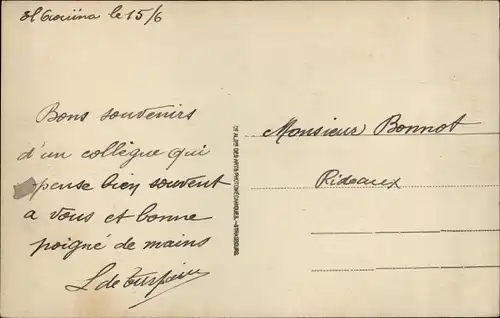 le 15/6
Bons souvenirs
d'un collègue qui
pense bien souvent
a vous et bonne
poigné de mains
Monsieur Bonnot
Rideaux